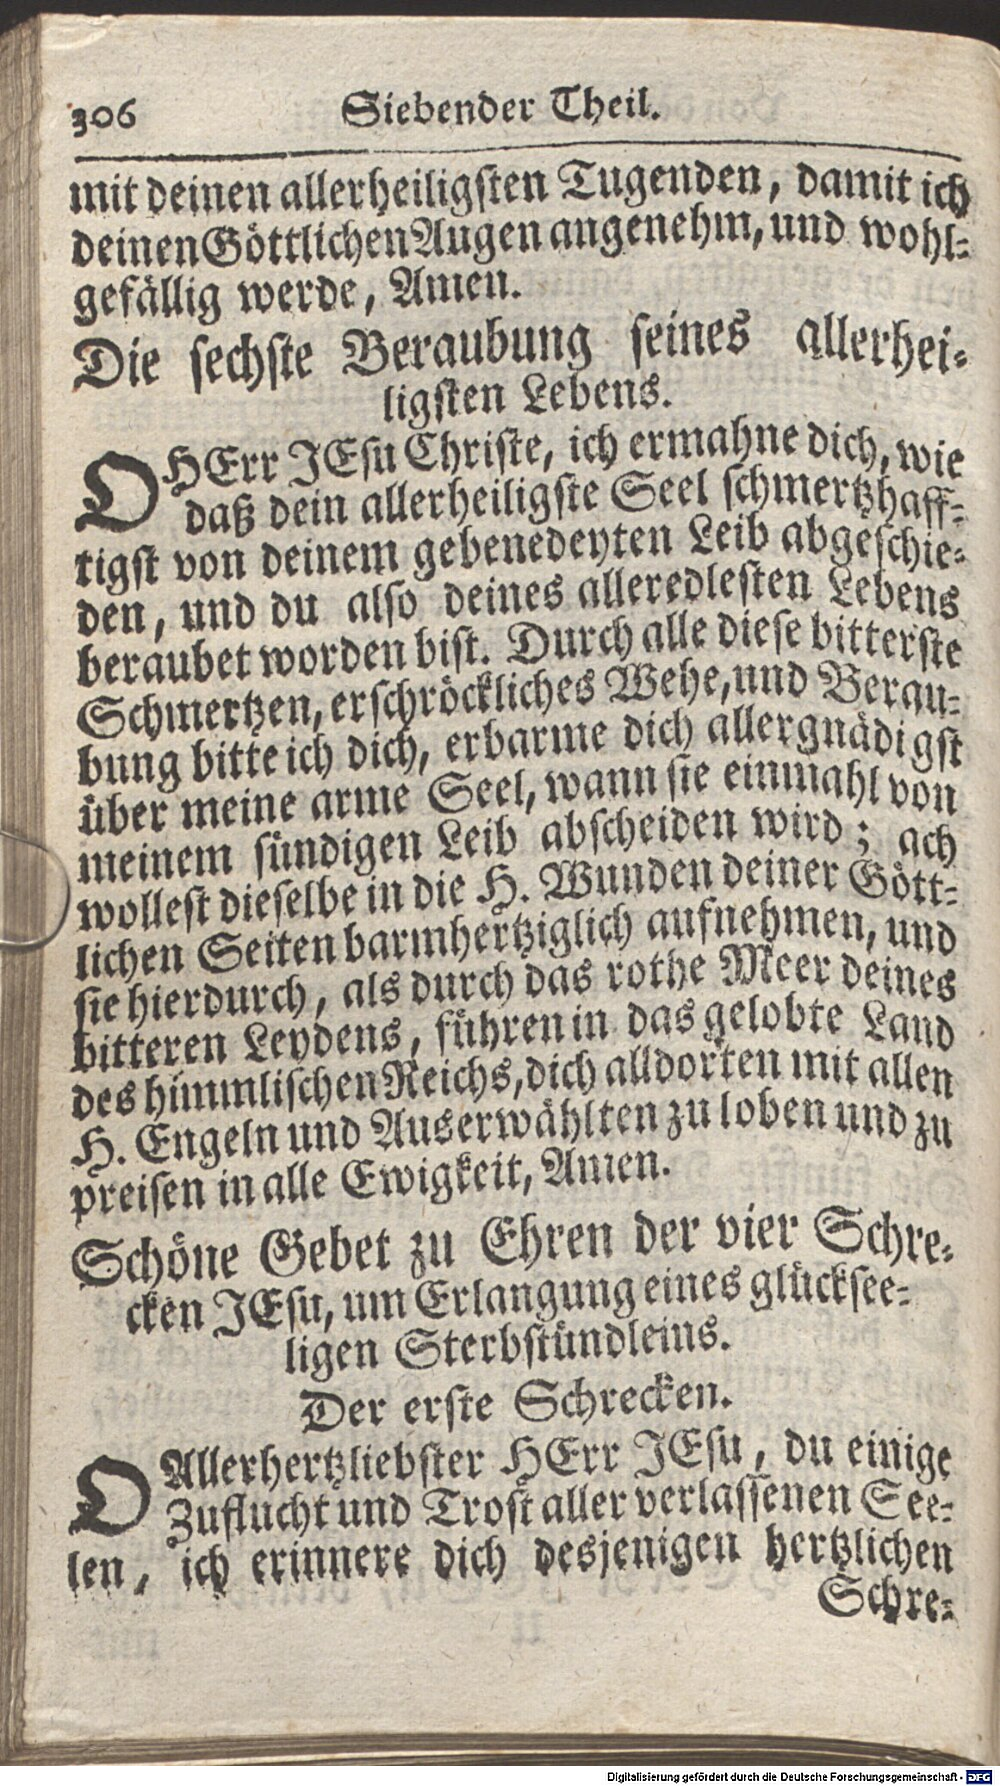 306 Siebender Theil.
mit deinen allerheiligsten Tugenden, damit ich
deinen Göttlichen Augen angenehm, und wohl-
gefällig werde, Amen.
Die sechste Beraubung seines allerhei-
ligsten Lebens.
O HErr JEsu Christe, ich ermahne dich, wie
daß dein allerheiligste Seel schmertzhaff-
tigst von deinem gebenedeyten Leib abgeschie-
den, und du also deines alleredlesten Lebens
beraubet worden bist. Durch alle diese bitterste
Schmertzen, erschröckliches Wehe, und Berau-
bung bitte ich dich, erbarme dich allergnädigst
über meine arme Seel, wann sie einmahl von
meinem sündigen Leib abscheiden wird; ach
wollest dieselbe in die H. Wunden deiner Gött-
lichen Seiten barmhertziglich aufnehmen, und
sie hierdurch, als durch das rothe Meer deines
bitteren Leydens, führen in das gelobte Land
des himmlischen Reichs, dich alldorten mit allen
H. Engeln und Auserwählten zu loben und zu
preisen in alle Ewigkeit, Amen.
Schöne Gebet zu Ehren der vier Schre-
cken JEsu, um Erlangung eines glücksee-
ligen Sterbstündleins.
Der erste Schrecken.
O Allerhertzliebster HErr JEsu, du einige
Zuflucht und Trost aller verlassenen See-
len, ich erinnere dich desjenigen hertzlichen
Schre-
Digitalisierung gefördert durch die Deutsche Forschungsgemeinschaft - DFG